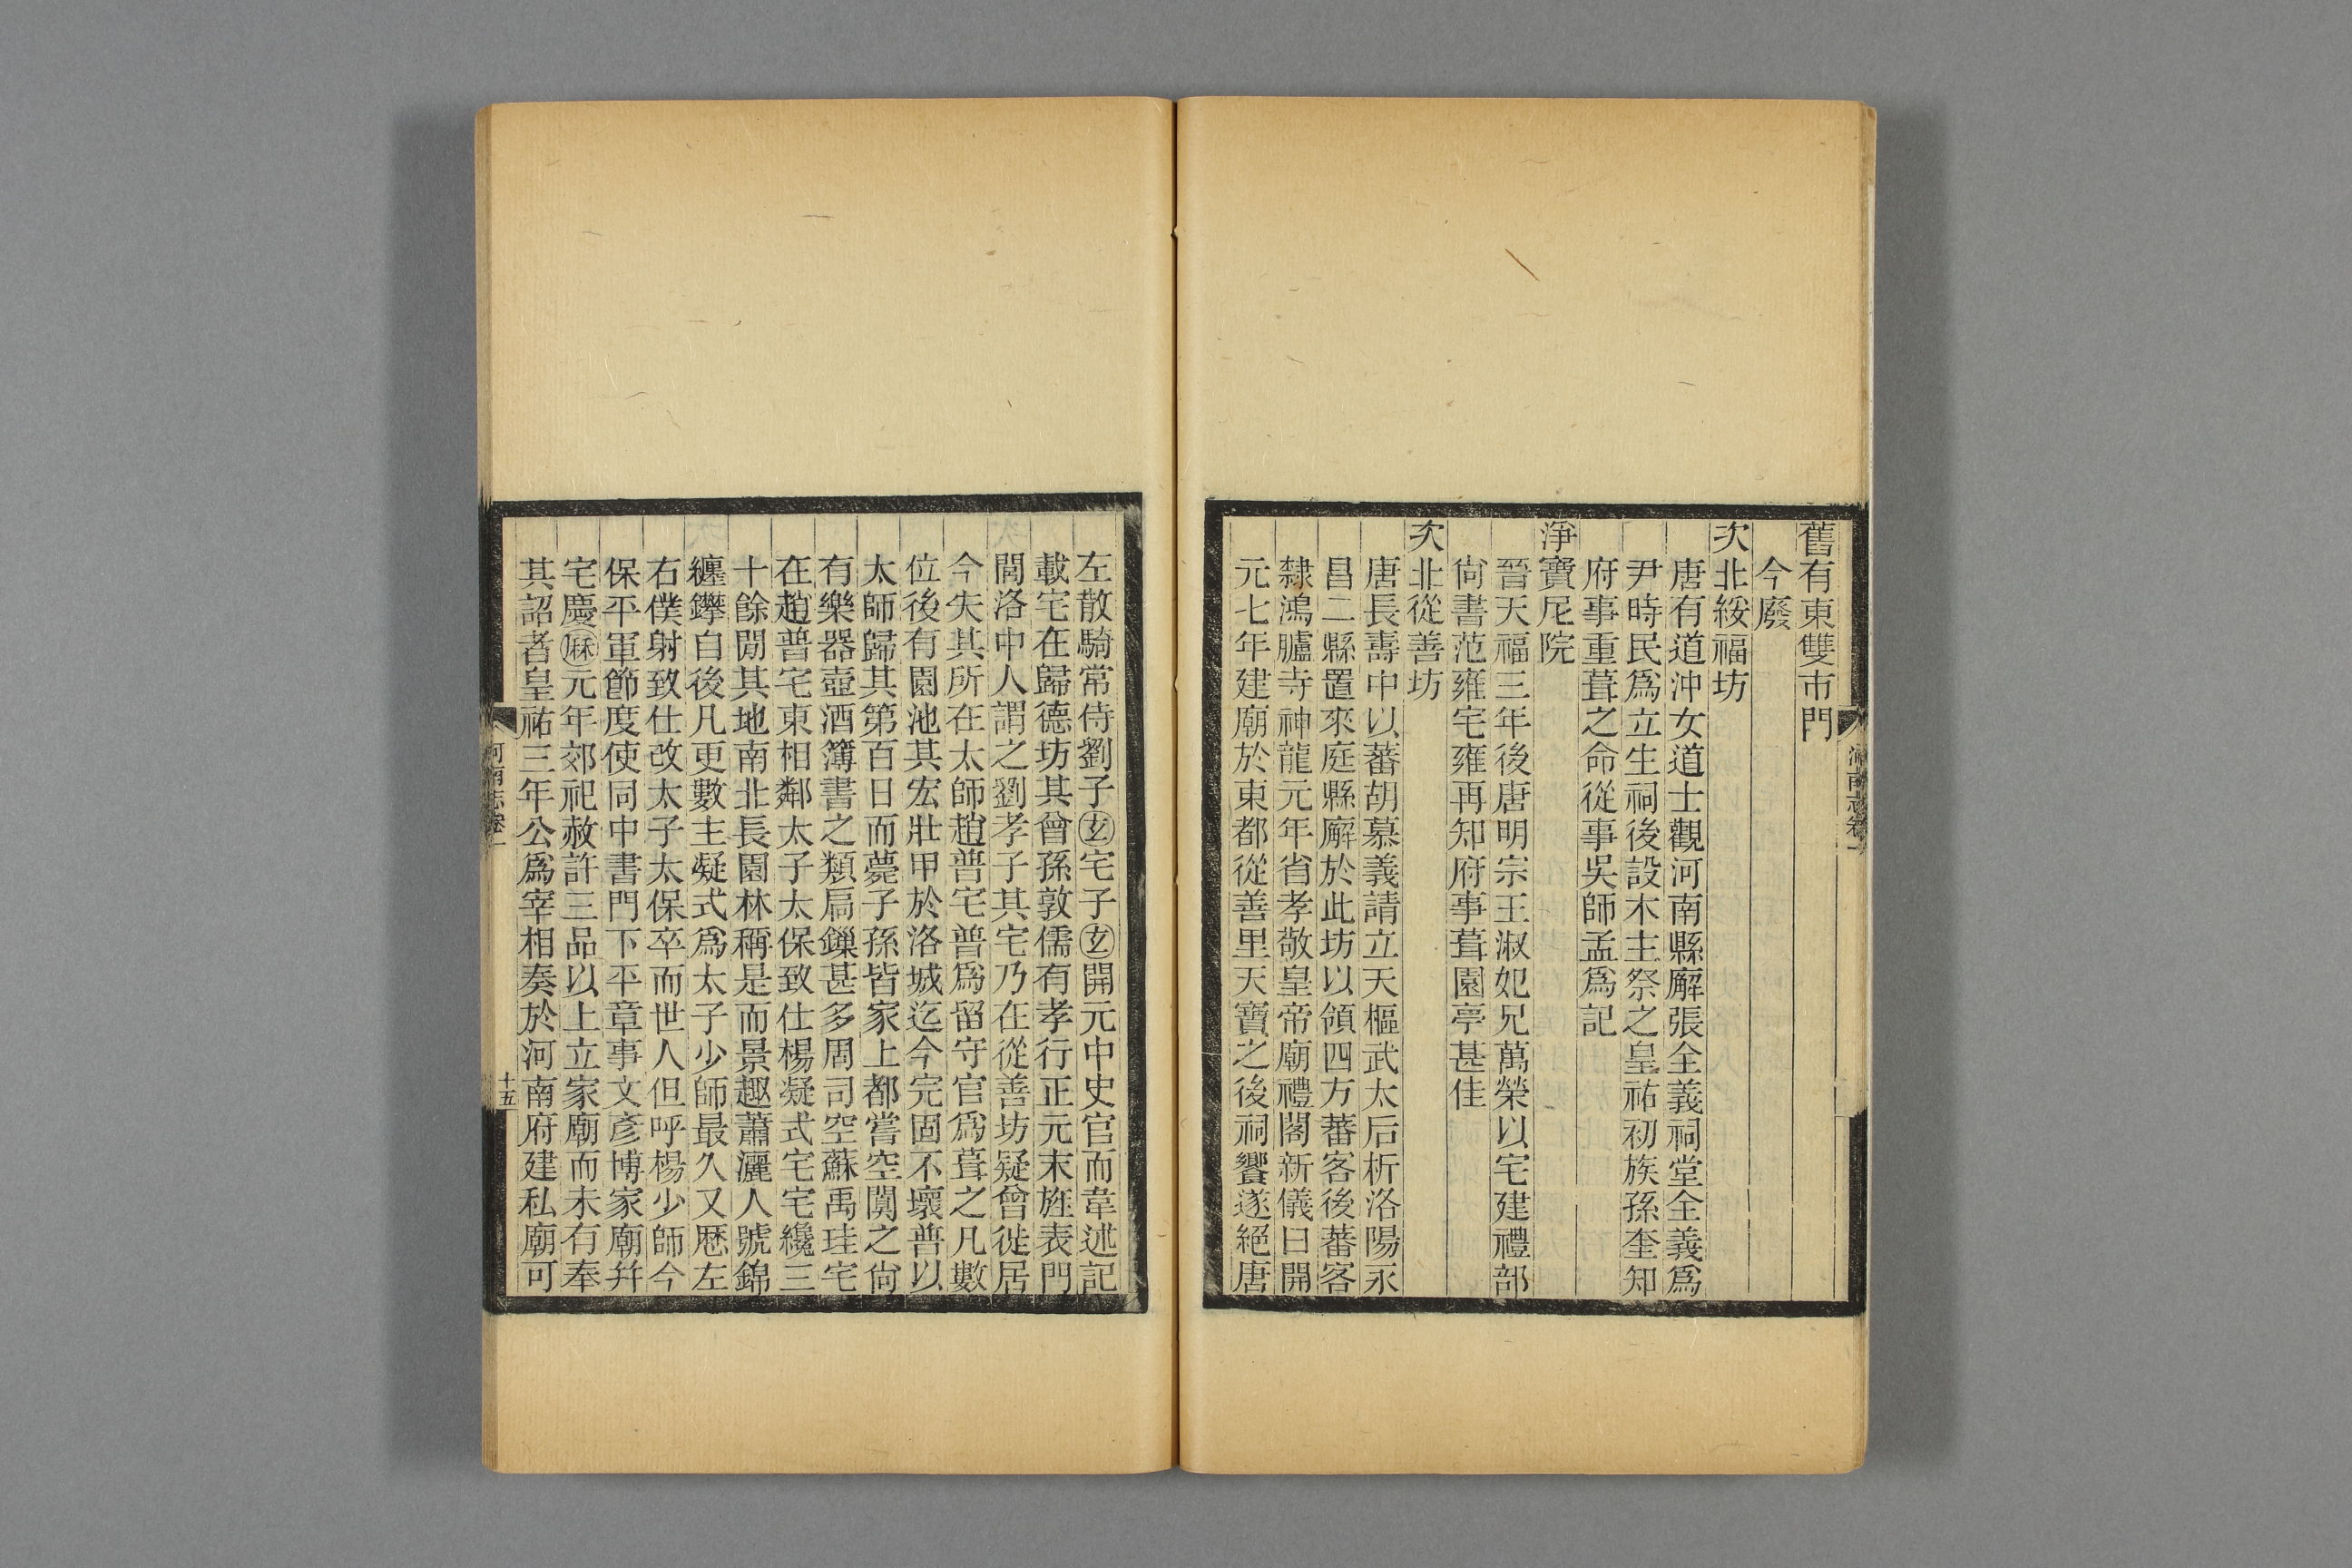 舊有東雙市門
今廢
次北綏福坊
唐有道沖女道士觀河南縣廨張全義祠堂全義爲
尹時民爲立生祠後設木主祭之皇祐初族孫奎知
府事重葺之命從事吳師孟爲記
淨寶尼院
晉天福三年後唐明宗王淑妃兄萬榮以宅建禮部
尙書范雍宅雍再知府事葺園亭甚佳
次北從善坊
唐長壽中以蕃胡慕義請立天樞武太后析洛陽永
昌二縣置來庭縣廨於此坊以領四方蕃客後蕃客
隸鴻臚寺神龍元年省孝敬皇帝廟禮閣新儀曰開
元七年建廟於東都從善里天寶之後祠饗遂絕唐
左散騎常侍劉子玄宅子玄開元中史官而韋述記
載宅在歸德坊其曾孫敦儒有孝行正元末旌表門
閭洛中人謂之劉孝子其宅乃在從善坊疑曾徙居
今失其所在太師趙普宅普爲留守官爲葺之凡數
位後有園池其宏壯甲於洛城迄今完固不壞普以
太師歸其第百日而薨子孫皆家上都嘗空閴之尙
有樂器壺酒簿書之類扃鏁甚多周司空蘇禹珪宅
在趙普宅東相鄰太子太保致仕楊凝式宅宅纔三
十餘閒其地南北長園林稱是而景趣蕭灑人號錦
纏鑻自後凡更數主凝式爲太子少師最久又歷左
右僕射致仕改太子太保卒而世人但呼楊少師今
保平軍節度使同中書門下平章事文彥博家廟幷
宅慶厤元年郊祀赦許三品以上立家廟而未有奉
其詔者皇祐三年公爲宰相奏於河南府建私廟可
河南志卷一
十五